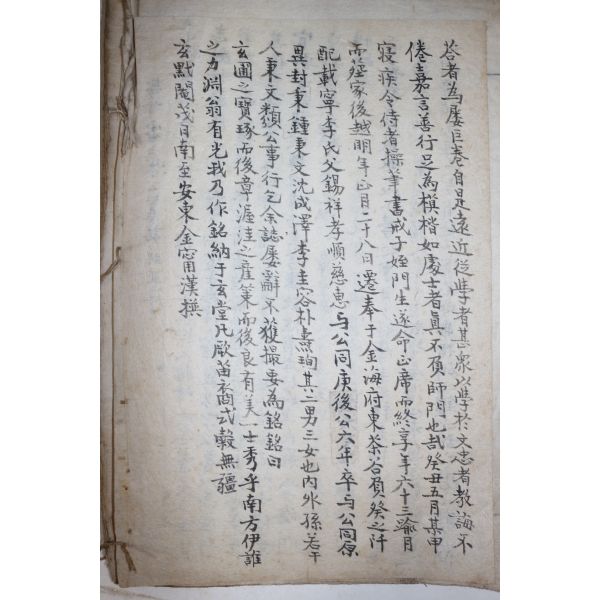 答者為屢巨卷自是遠近從學者甚衆以學於文忠者教誨不
倦嘉言善行足為模楷如處士者眞不負師門也哉癸丑五月某甲
寢疾令侍者操筆書戒子姪門生遂命正席而終享年六十三踰月
而葬家後越明年正月二十八日遷奉于金海府東茶谷負癸之阡
配載寧李氏父錫祥孝順慈惠与公同庚後公六年卒与公同原
異封秉鍾秉文沈成澤李圭容朴熏珣其二男三女也内外孫若干
人秉文類公事行乞余誌屢辭不獲撮要為銘銘曰
玄圃之寶琢而後章渥洼之産策而後良有美一士秀乎南方伊誰
之力淵翁有光我乃作銘納于玄堂凡厥苗裔式穀無疆
玄黓閹茂日南至安東金甯漢撰